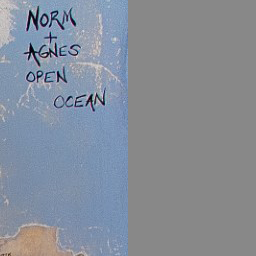 NORM
+
AGNES
OPEN
OCEAN